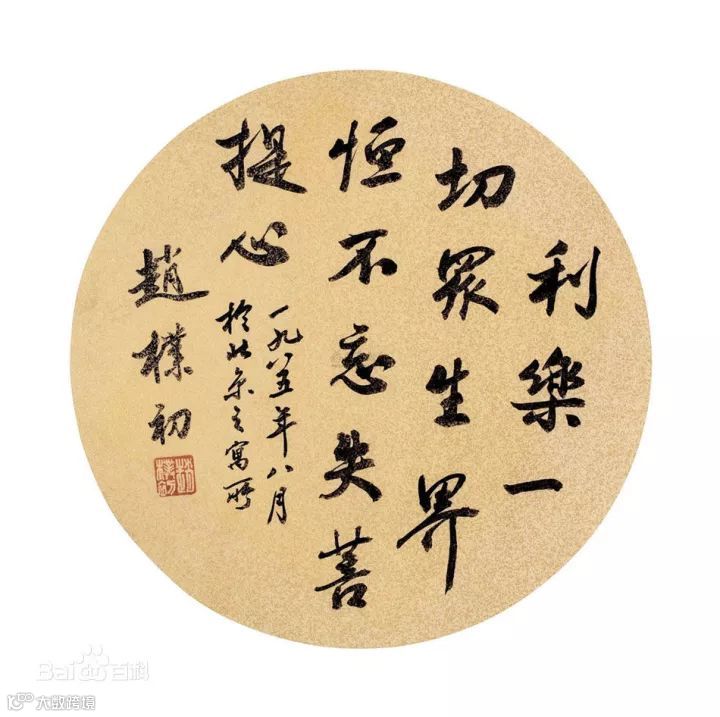 利樂一
切眾生界
恒不忘失菩
提心
一九八五年八月
於北京之寓所
趙樸初
Bai du 百科
大数跨境